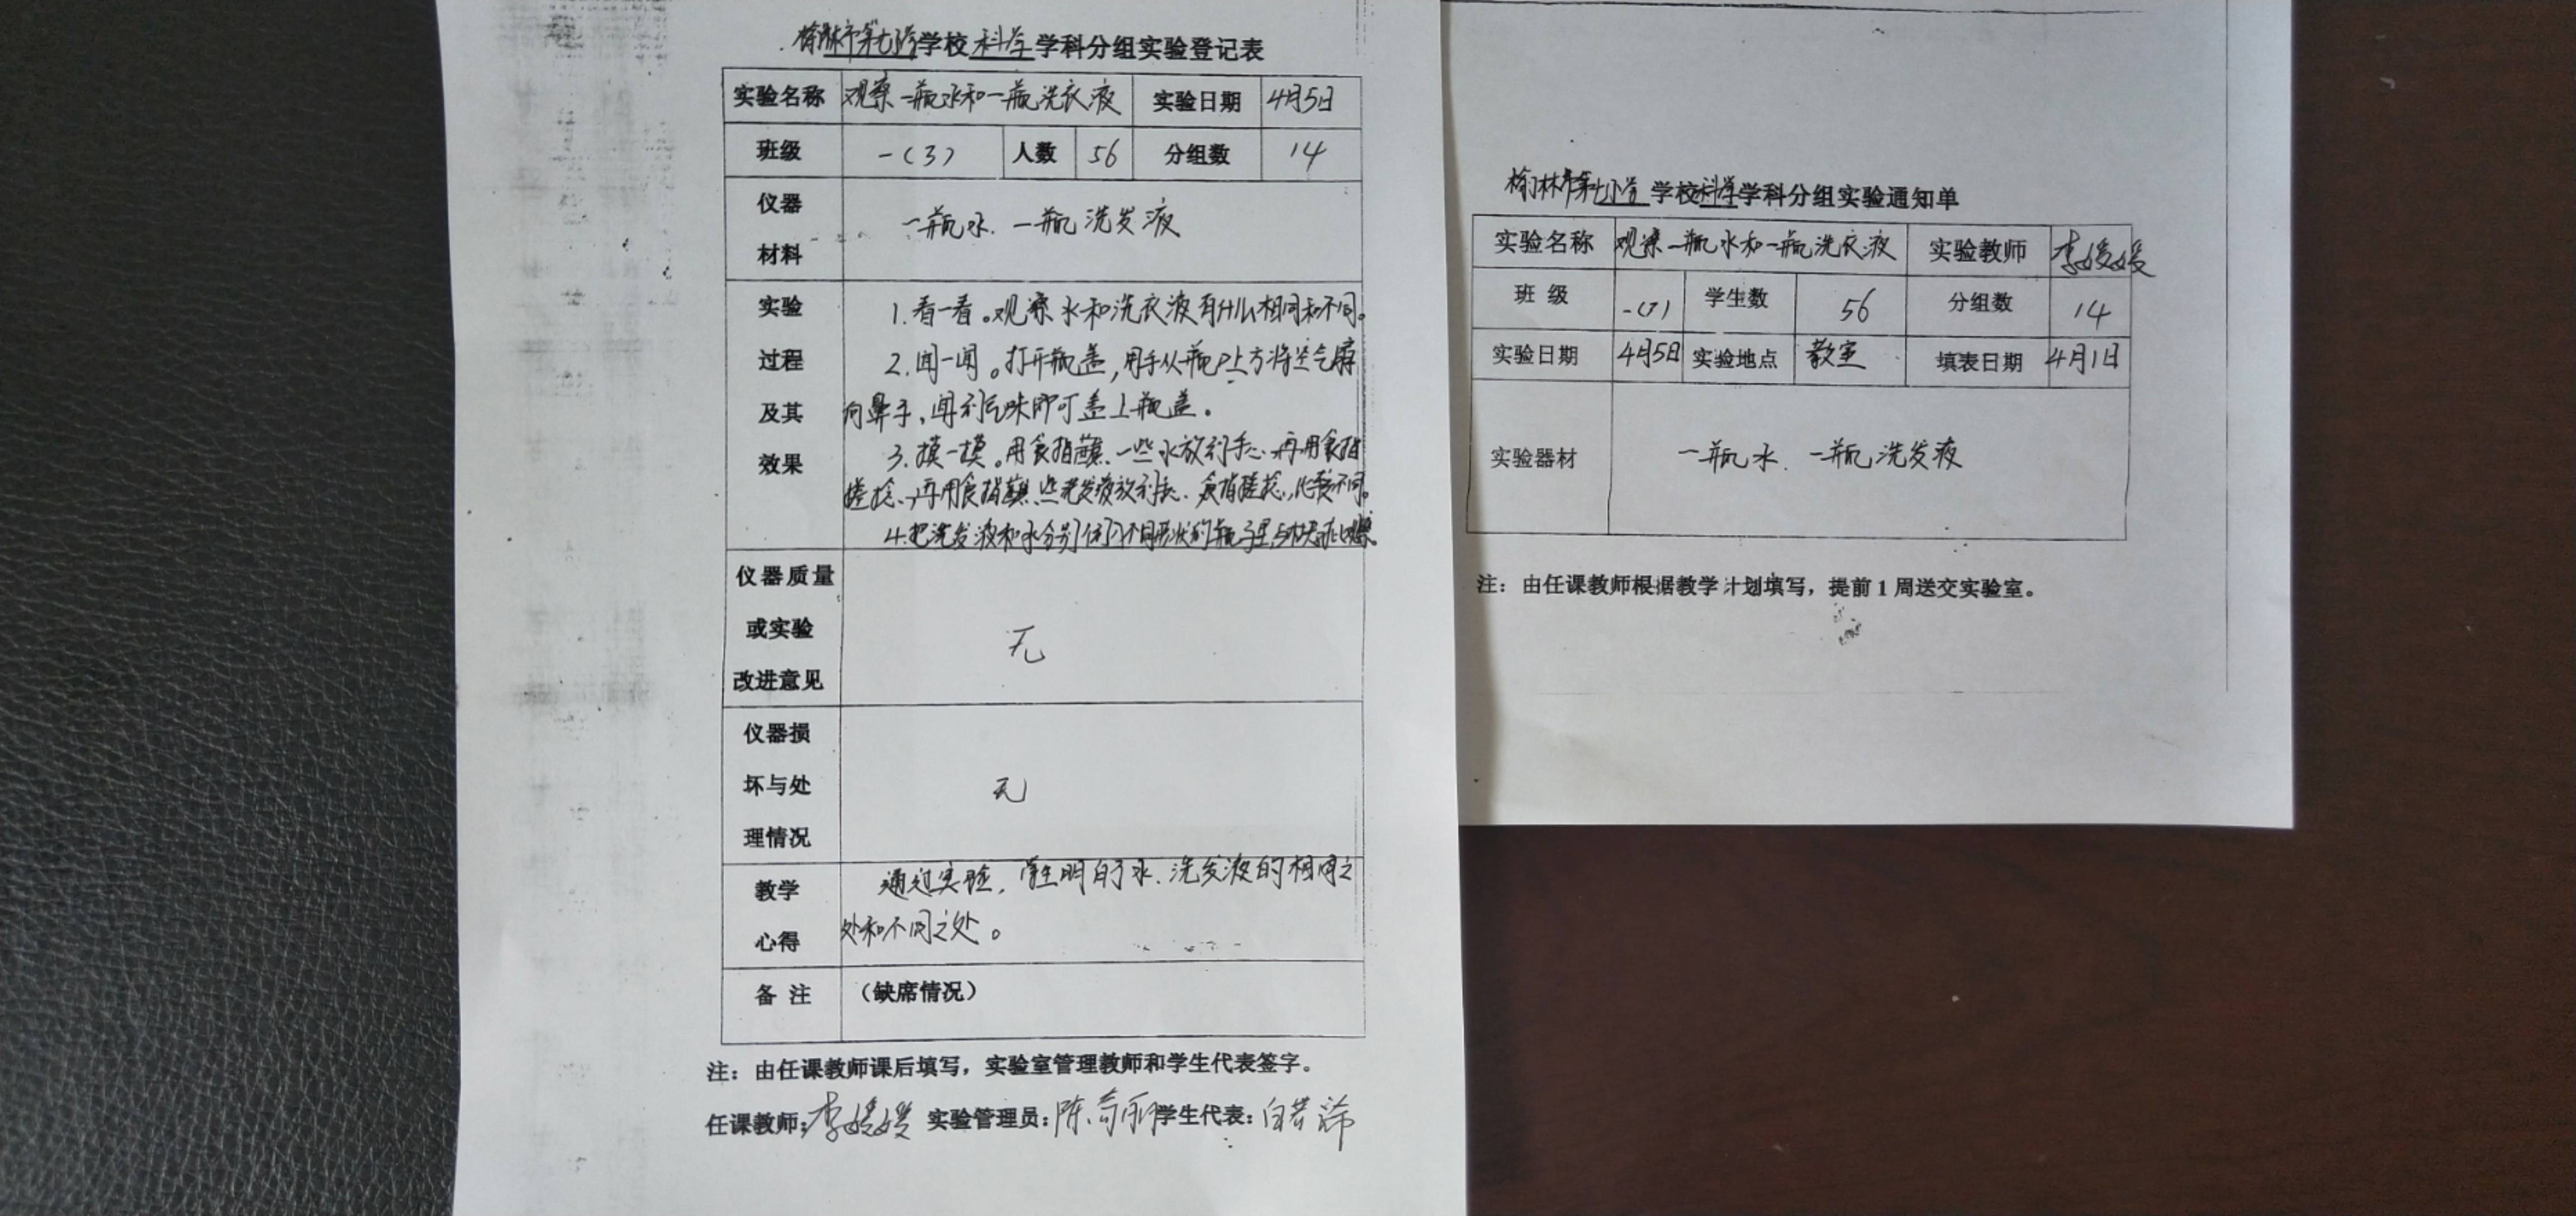 榆林市第七小学学校科学学科分组实验登记表
实验名称 观察一瓶水和一瓶洗衣液 实验日期 4月5日
班级 一(3) 人数 56 分组数 14
仪器
材料
一瓶水、一瓶洗发液
实验
过程
及其
效果
1.看一看。观察水和洗衣液有什么相同和不同。
2.闻一闻。打开瓶盖,用手从瓶口上方将空气扇
向鼻子,闻到气味即可盖上瓶盖。
3.摸一摸。用食指蘸一些水放到手心,再用食指
搓捻,再用食指蘸些洗发液放到手心,食指搓捻,比较不同。
4.把洗发液和水分别倒入不同形状的瓶子里
仪器质量
或实验
改进意见
无
仪器损
坏与处
理情况
无
教学
心得
通过实验,学生明白了水、洗发液的相同之
处和不同之处。
备 注 (缺席情况)
注:由任课教师课后填写,实验室管理教师和学生代表签字。
任课教师:李媛媛 实验管理员:陈 学生代表:白
榆林市第七小学 学校科学学科分组实验通知单
实验名称 观察一瓶水和一瓶洗衣液 实验教师 李媛媛
班 级 一(3) 学生数 56 分组数 14
实验日期 4月5日 实验地点 教室 填表日期 4月1日
实验器材 一瓶水、一瓶洗发液
注:由任课教师根据教学计划填写,提前1周送交实验室。